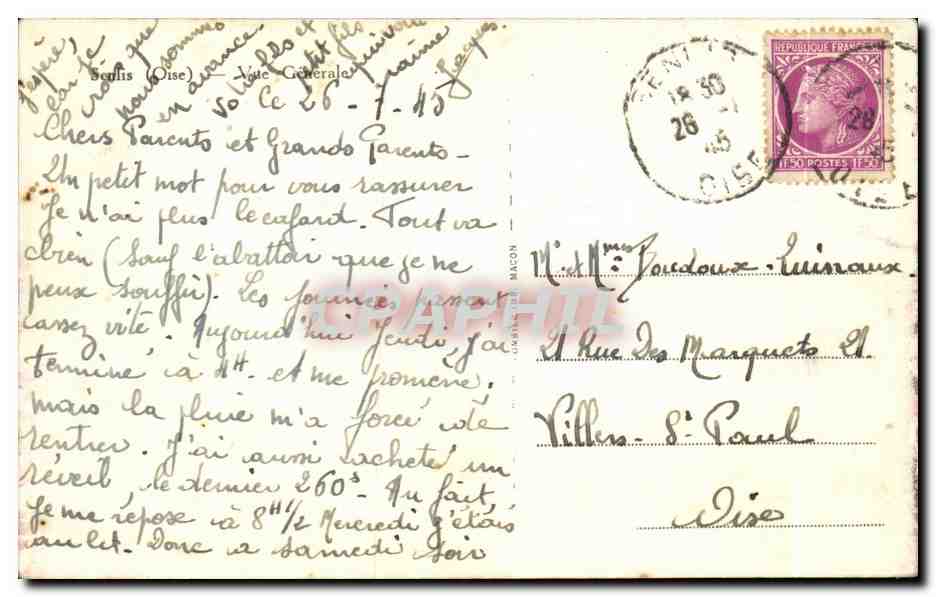 Senlis (Oise) — Vue Générale
Ce 26-7-45
Chers Parents et Grands Parents-
Un petit mot pour vous rassurer
Je n'ai plus le cafard. Tout va
bien (sauf l'abattoir que je ne
peux souffrir). Les journées passent
assez vite. Aujourd'hui Jeudi, j'ai
terminé à 4H. et me promène,
mais la pluie m'a forcé de
rentrer. J'ai aussi acheté un
réveil, le dernier 260s- Au fait,
Je me repose à 8H½ Mercredi j'étais
au lit. Donc à samedi soir
j'espère,
car je
crois que
nous sommes
en avance
votre fils et
petit fils
qui vous
aime
Jacques
MACON
CPAPHIL
SENLIS
18 30
26 -7
45
OISE
REPUBLIQUE FRANÇ
1F50 POSTES 1F50
Mr et Mmes Doudoux-
21 Rue Des Marquets 21.
Villers-St Paul
Oise